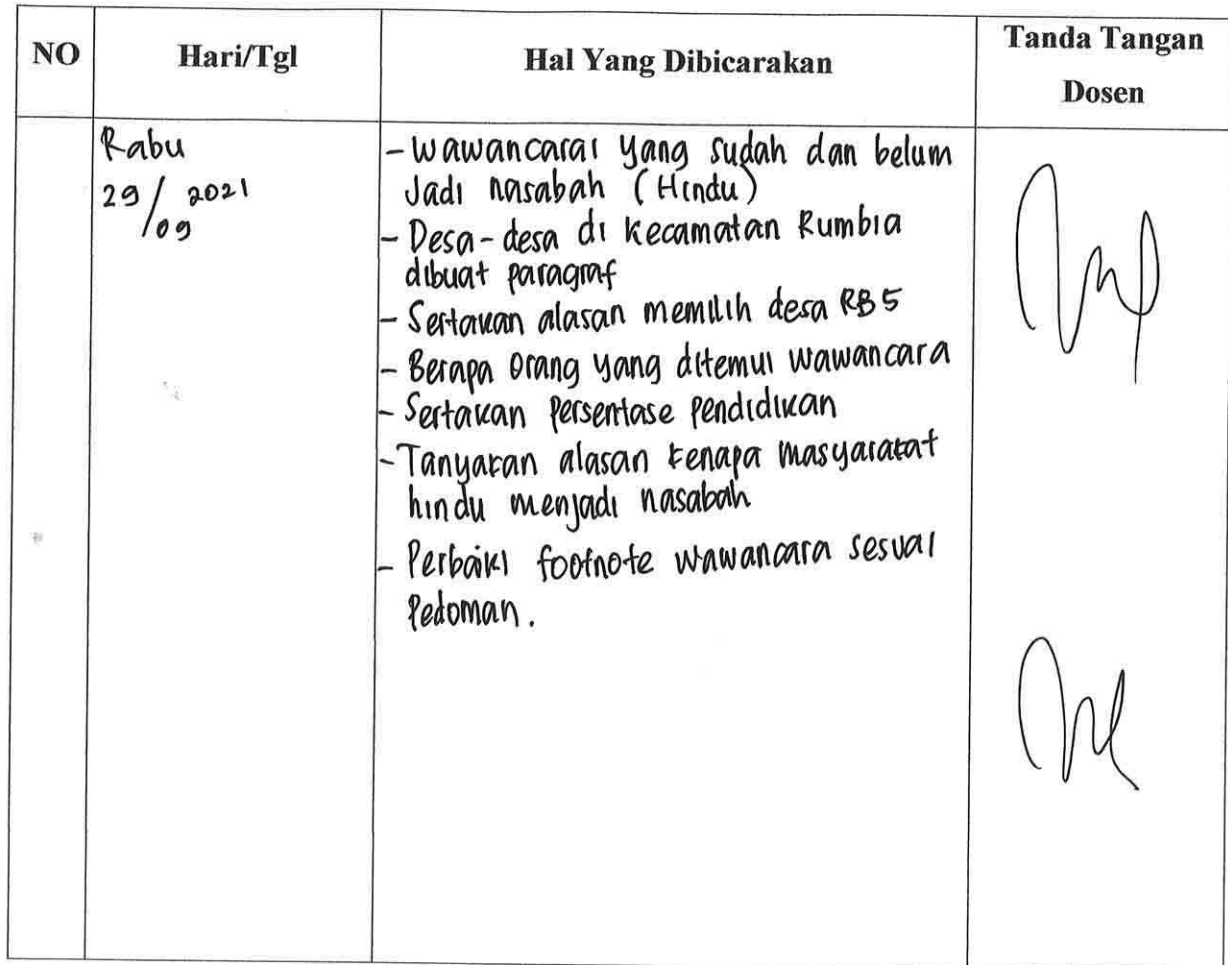 NO
Hari/Tgl
Hal Yang Dibicarakan
Tanda Tangan
Dosen
Rabu
29/09 2021
- Wawancarai yang sudah dan belum
Jadi nasabah (Hindu)
- Desa-desa di Kecamatan Rumbia
dibuat paragraf
- Sertakan alasan memilih desa RB 5
- Berapa orang yang ditemui wawancara
- Sertakan Persentase pendidikan
- Tanyakan alasan kenapa masyarakat
hindu menjadi nasabah
- Perbaiki footnote wawancara sesuai
Pedoman.